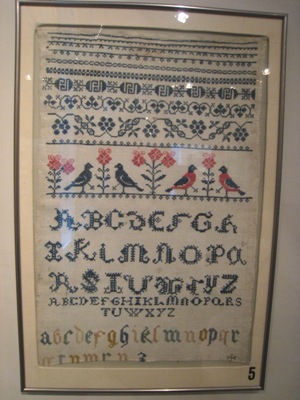 ABCDEFGH
IKLMNOPQ
RSTUVWXYZ
ABCDEFGHIKLMNOPQRS
TUVWXYZ
abcdefghiklmnopqr
5